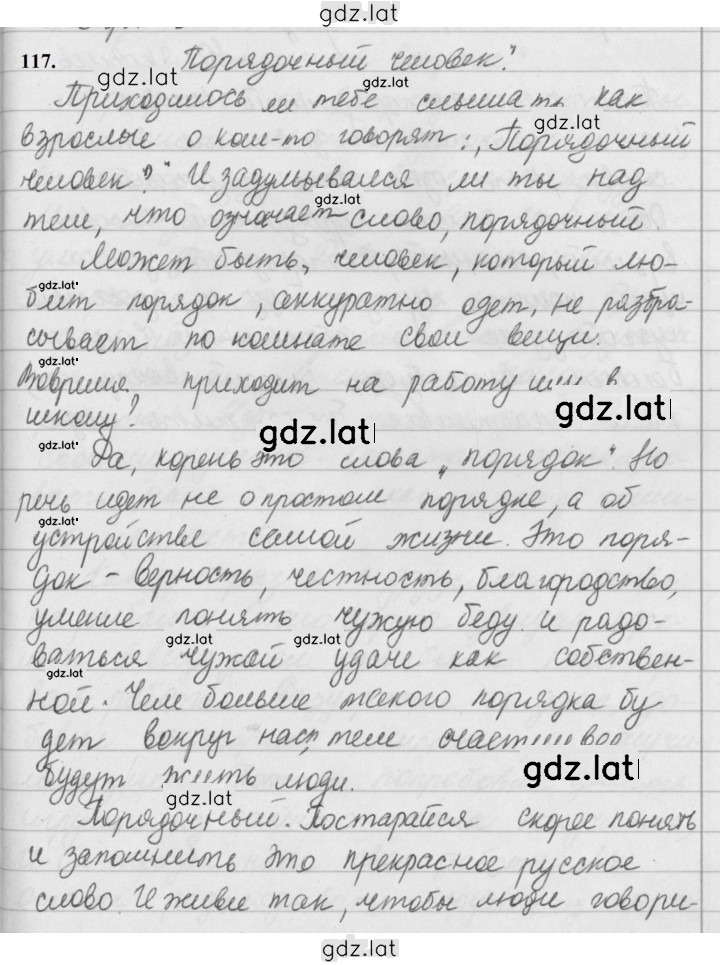 gdz.lat
117. Порядочный человек".
gdz.lat
gdz.lat
Приходилось ли тебе слышать как
gdz.lat
взрослые о ком-то говорят: „Порядочный
человек"? И задумывался ли ты над
gdz.lat
тем, что означает слово „порядочный".
Может быть, человек, который лю-
gdz.lat
бит порядок, аккуратно одет, не разбра-
сывает по комнате свои вещи.
gdz.lat
Вовремя, приходит на работу или в
школу?
gdz.lat
gdz.lat
gdz.lat
Да, корень это слова „порядок". Но
речь идет не о простом порядке, а об
gdz.lat
устройстве самой жизни. Это поря-
док - верность, честность, благородство,
умение понять чужую беду и радо-
gdz.lat
gdz.lat
ваться чужой удаче как собствен-
ной. Чем больше такого порядка бу
дет вокруг нас, тем счастливее
gdz.lat
будут жить люди.
gdz.lat
Порядочный. Постарайся скорее понять
и запомнить это прекрасное русское
слово. И живи так, чтобы люди говори-
gdz.lat